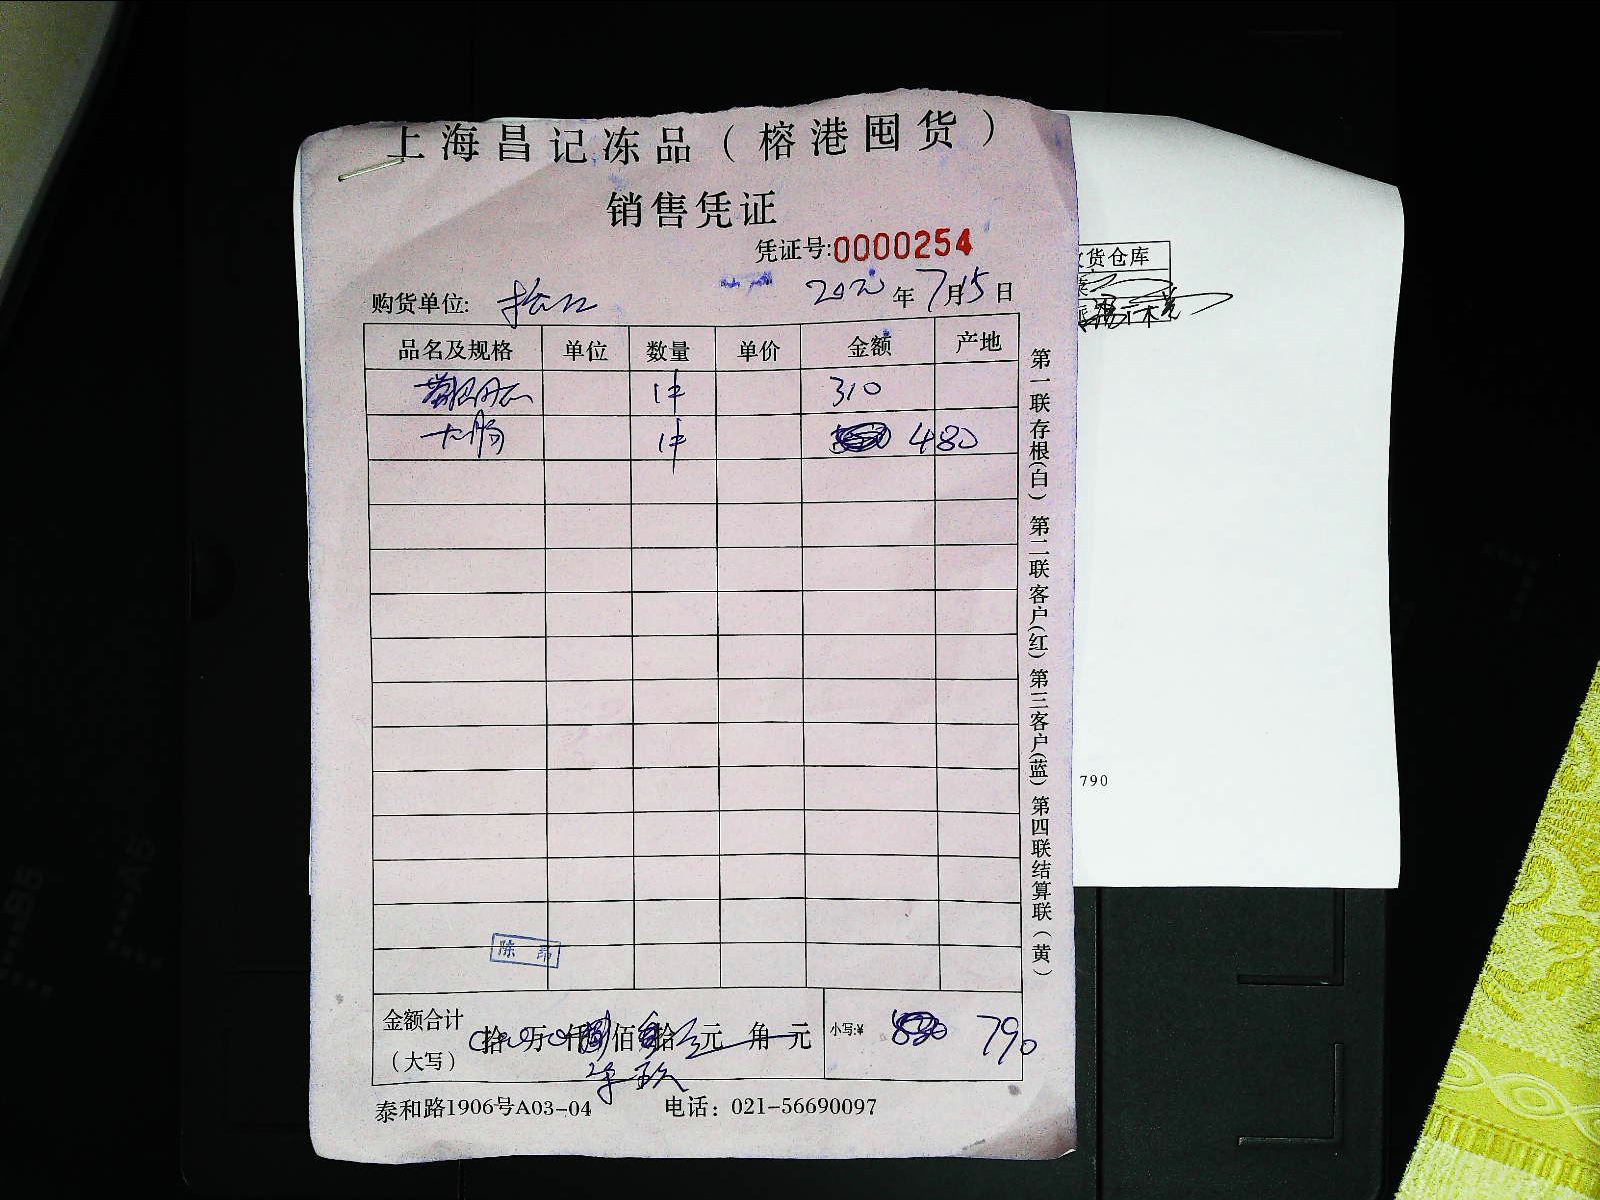 上海昌记冻品（榕港囤货）
销售凭证
凭证号:0000254
购货单位: 2020年7月15日
品名及规格 单位 数量 单价 金额 产地
1件 310
大肠 1件 480
金额合计（大写） 拾 万 仟 佰 拾 元 角 元 小写:¥ 790
泰和路1906号A03-04 电话：021-56690097
第一联存根(白) 第二联客户(红) 第三客户(蓝) 第四联结算联(黄)
陈
货仓库
790